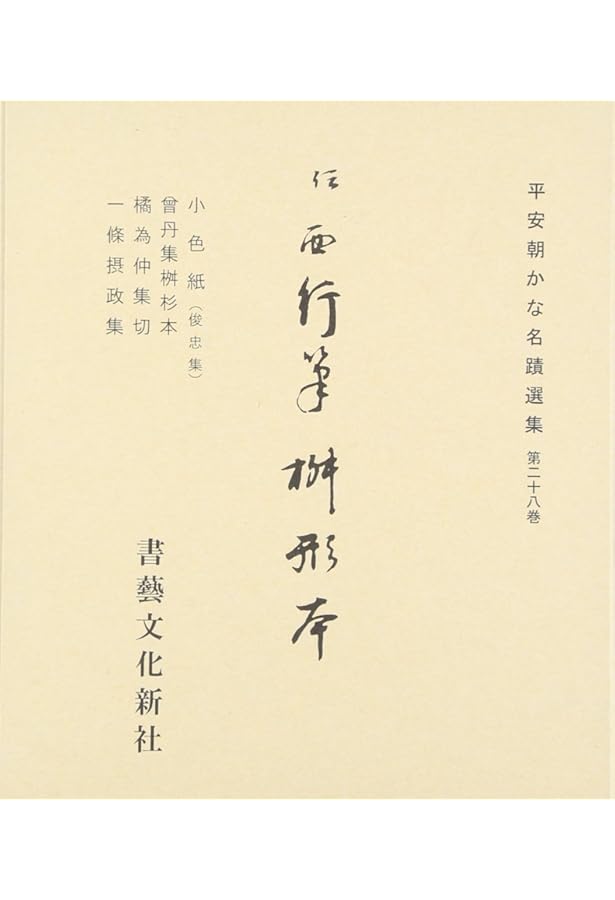 平安朝かな名蹟選集 第二十八巻
伝 西行筆 桝形本
小色紙（俊忠集）
曾丹集桝杉本
橘為仲集切
一條摂政集
書藝文化新社